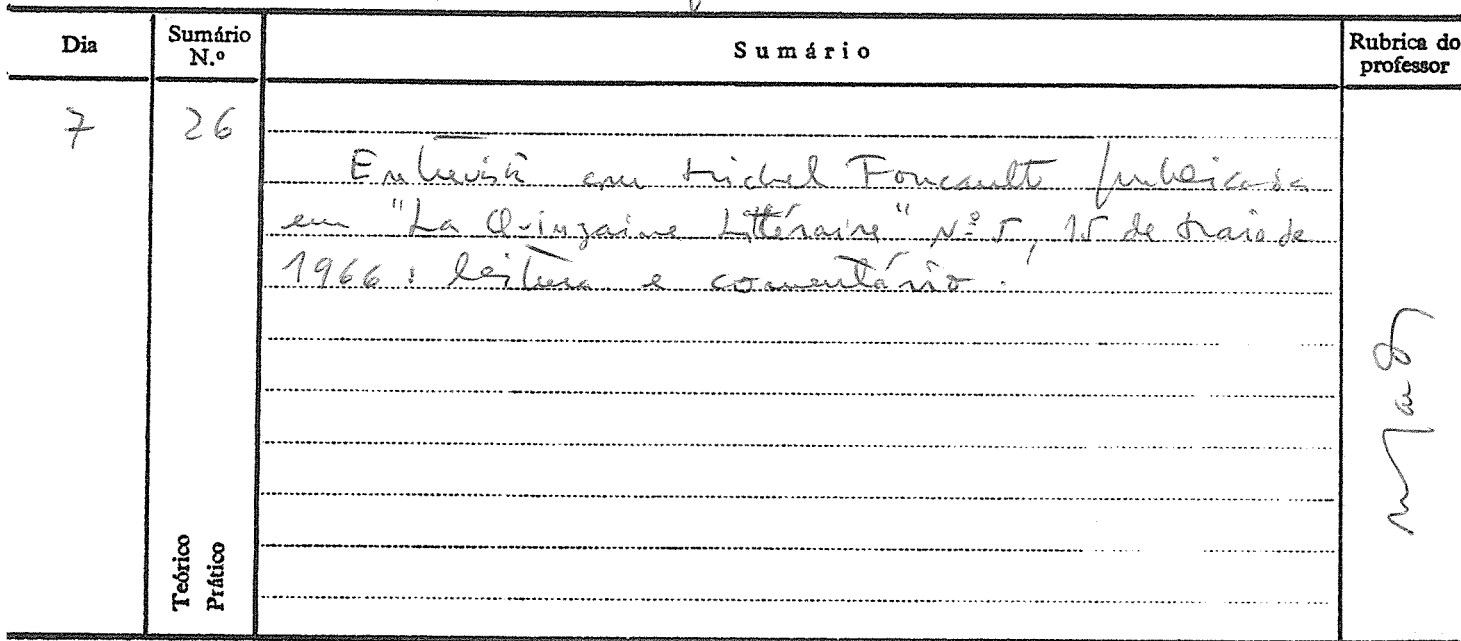 Dia
Sumário N.º
Sumário
Rubrica do professor
7
26
Entrevista com Michel Foucault publicada
em "La Quinzaine Littéraire" Nº 5, 15 de Maio de
1966: leitura e comentário.
Teórico
Prático